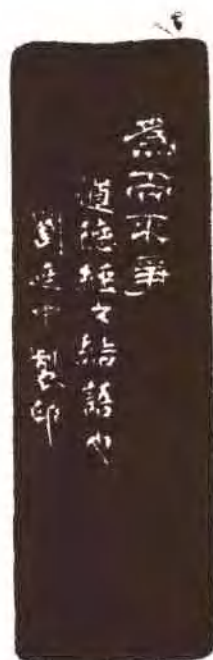 為而不爭
道德經之結語也
劉迺中製印